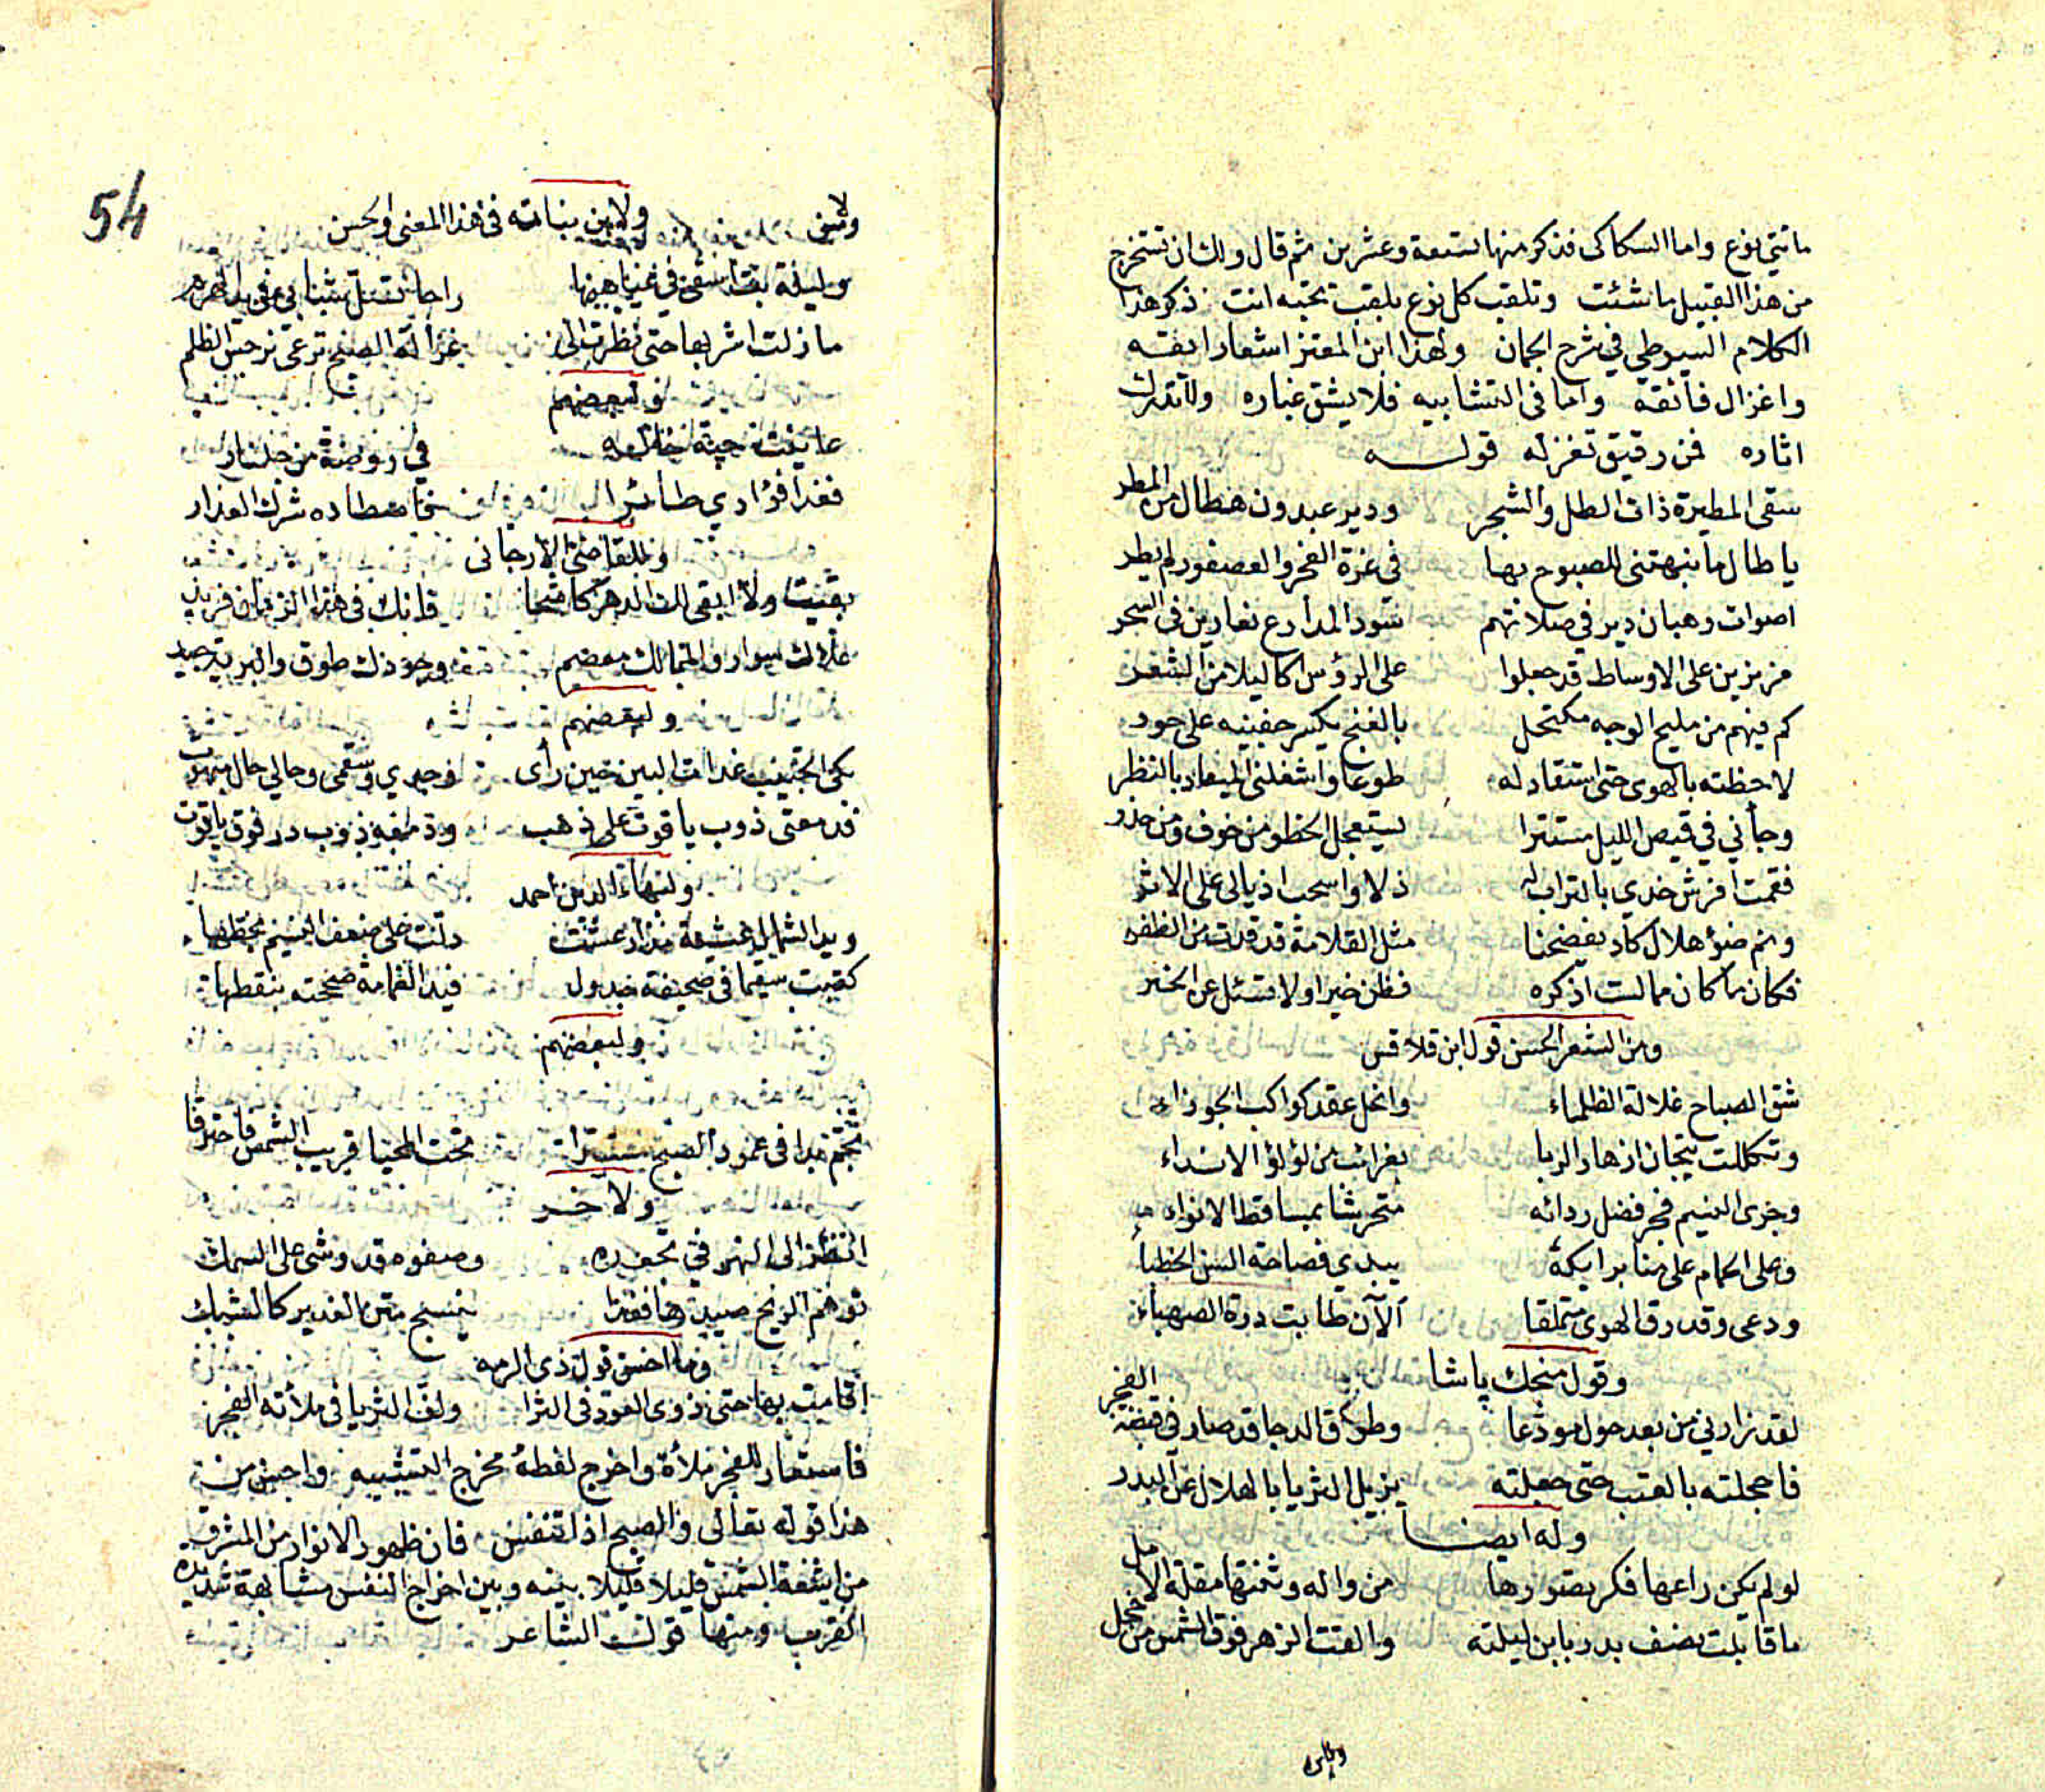 مائتي نوع واما السكاكى فذكر منها تسعة وعشرين ثم قال ولك ان تستخرج
من هذا القبيل ما شئت وتلقب كل نوع بلقب تحبه انت ذكر هذا
الكلام السيوطي في شرح الجمان ولهذا ابن المعتز اشعار ايقه
واغزال فائقة واما فى التشابيه فلا يشق غباره ولا تدرك
اثاره فمن رقيق تغزله قولـه
سقى المطيرة ذات الطل والشجر ودير عبدون هطال من المطر
يا طال ما نبهتنى للصبوح بها في غرة الفجر والعصفور لم يطر
اصوات رهبان دير في صلاتهم سود المدارع نعارين فى السحر
مزنرين على الاوساط قد جعلوا على الرؤس اكاليلا من الشعر
كم فيهم من مليح الوجه مكتحل بالغنج يكسر جفنيه على حور
لاحظته بالهوى حتى استقاد له طوعا واشغلنى الميعاد بالنظر
وجأني في قميص الليل مستترا يستعجل الخطو من خوف ومن حذر
فقمت افرش خدي بالتراب له ذلا واسحب اذيالى على الاثر
ونم ضؤ هلال كاد يفضحنا مثل القلامة قد قدت من الظفر
فكان ما كان مما لست اذكره فظن خيرا ولا تسئل عن الخبر
ومن الشعر الحسن قول ابن قلاقس
شق الصباح غلالة الظلماء وانحل عقد كواكب الجوزاء
وتكللت تيجان ازهار الربا بغرائب من لؤلؤ الانداء
وجرى النسيم فجر فضل ردائه متحرشا بمساقط الانواء
وعلى الحمام على منابر ايكة يبدي فصاحة السن الخطباء
ودعى وقد رق الهوى متملقا الآن طابت درة الصهباء
وقول منجك پاشا
لقد زارني من بعد حول مودعا وطوق الدجا قد صار في قبضة الفجر
فاخجلته بالعتب حتى جعلته يزيل الثريا بالهلال عن البدر
وله ايضـا
لو لم يكن راعها فكر تصورها من واله وثنتها مقلة الامل
ما قابلت نصف بدر بابن ليلته والقت الزهر فوق الشمس من خجل
ولابن
54
ولابن ولابن نباته فى هذا المعنى او الحسن
وليلة بت اسقى في غياهبها راحا تسل شبابي من يد الهرم
ما زلت اشربها حتى نظرت الى غزالة الصبح ترعى نرجس الظلم
ولبعضهم
عاينت حبة خاله في روضة من جلنار
فغدا فؤادي طائرا فاصطاده شرك العذار
وللقاضى الارجانى
بقيت ولا ابقى لك الدهر كاشحا فانك فى هذا الزمان فريد
علاك سوار والممالك معصم وجودك طوق والبرية جيد
ولبعضهم
بكى الحبيب غداة البين حين رأى وجدي وسقمى وحالي حال مبهوت
فدمعتى ذوب ياقوت على ذهب ودمعه ذوب در فوق ياقوت
ولبهاء الدين احمد
ويد الشمال عشية مذ ارعشت دلت على ضعف النسيم بخطها
كتبت سقيما فى صحيفة جدول فيد الغمامة صححته بنقطها
ولبعضهم
نجم بدا فى عمود الصبح مستترا تحت المحيا قريب الشمس فاحترقا
ولاخـر
انظر الى النهر في تجعده وصفوه قد وشى على السمك
توهم الريح صيدها فغدا ينسج متن الغدير كالشبك
وما احسن قول ذى الرمه
اقامت بها حتى ذوى العود فى الثرا ولف الثريا فى ملأته الفجر
فاستعار للفجر ملأة واخرج لفظة مخرج التشبيه واحسن من
هذا قوله تعالى والصبح اذا تنفس فان ظهور الانوار من المشرق
من اشعة الشمس قليلا قليلا بينه وبين اخراج النفس مشابهة شديدة
القرب ومنها قول الشاعر